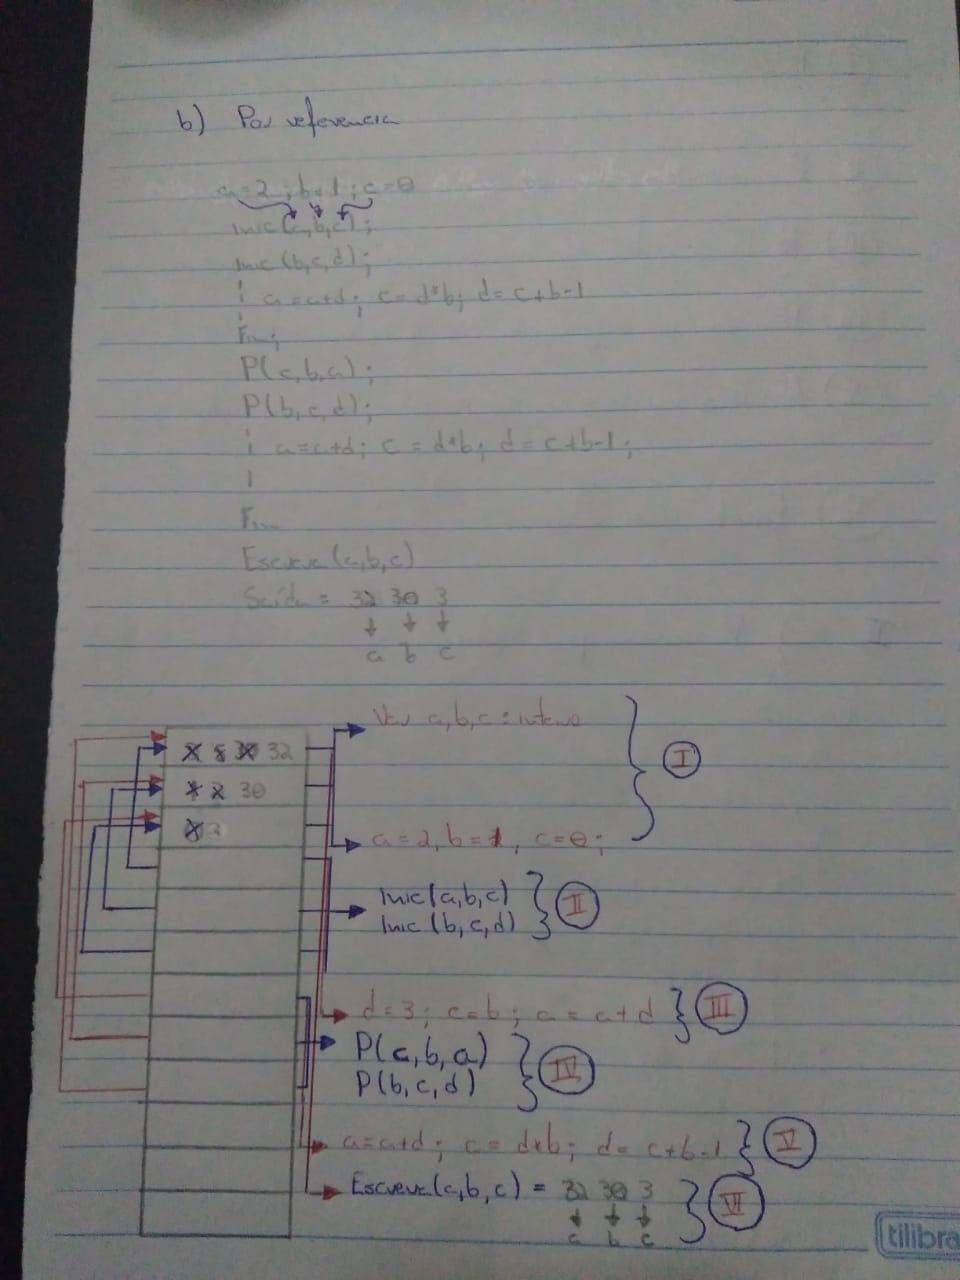 b) Por referencia
a=2 ; b=1 ; c=0
Inic(a,b,c);
Inic (b,c,d);
a=a+d; c=d*b; d=c+b-1
Fim;
P(c,b,a);
P(b,c,d);
a=a+d; c=d*b; d=c+b-1;
Fim
Escreve(a,b,c)
Saída = 32 30 3
a b c
Var a,b,c: inteiro
I
32
30
3
a=2, b=1, c=0;
Inic(a,b,c)
Inic (b,c,d)
II
d=3; c=b; a=a+d
III
P(c,b,a)
P(b,c,d)
IV
a=a+d; c=d*b; d=c+b-1
V
Escreve(a,b,c) = 32 30 3
VI
a b c
tilibra